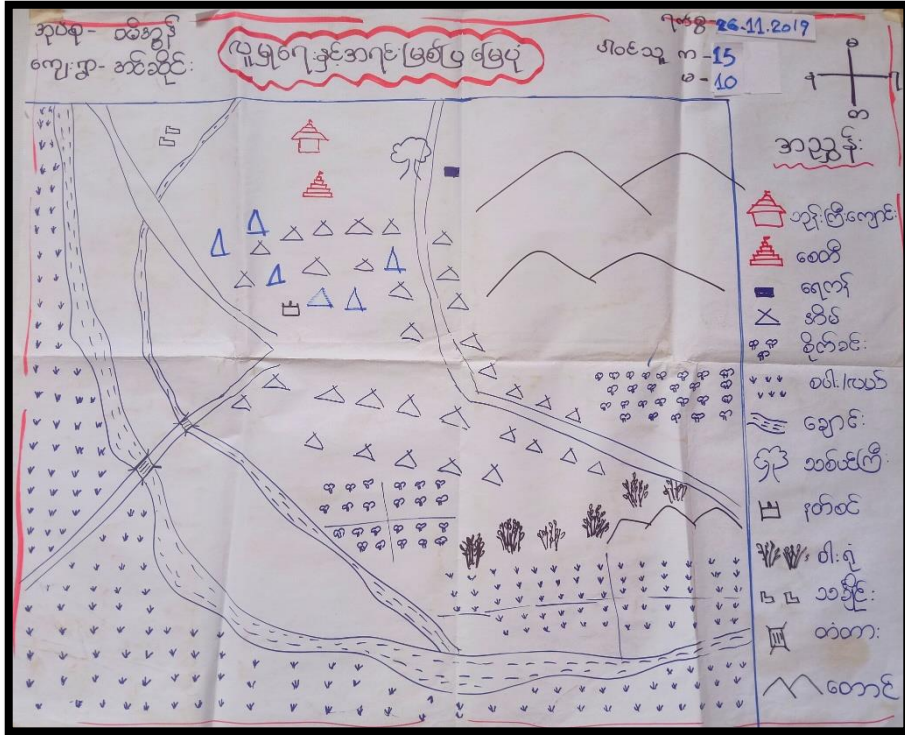 အုပ်စု - ဝမိအွန်
ကျေးရွာ - အင်ဆိုင်း
လူမှုရေးနှင့်အရင်းမြစ်ပြမြေပုံ
ရက်စွဲ 26.11.2019
ပါဝင်သူ က - 15
မ - 10
အညွှန်း
ဘုန်းကြီးကျောင်း
စေတီ
ရေကန်
အိမ်
စိုက်ခင်း
စပါး/လယ်
ချောင်း
သစ်ပင်ကြီး
နတ်စင်
ဝါးရုံ
သင်္ချိုင်း
တံတား
တောင်